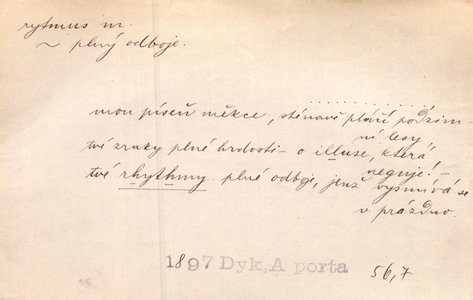 rytmus m.
~ plný odboje.
mou píseň měkce, sténavě pláčí podzim-
ní lesy
tvé zvuky plné hrdosti – o illuse, která
neguje! –
tvé rhythmy plné odboje, jenž vysmívá se
v prázdno.
1897 Dyk, A porta 56,7